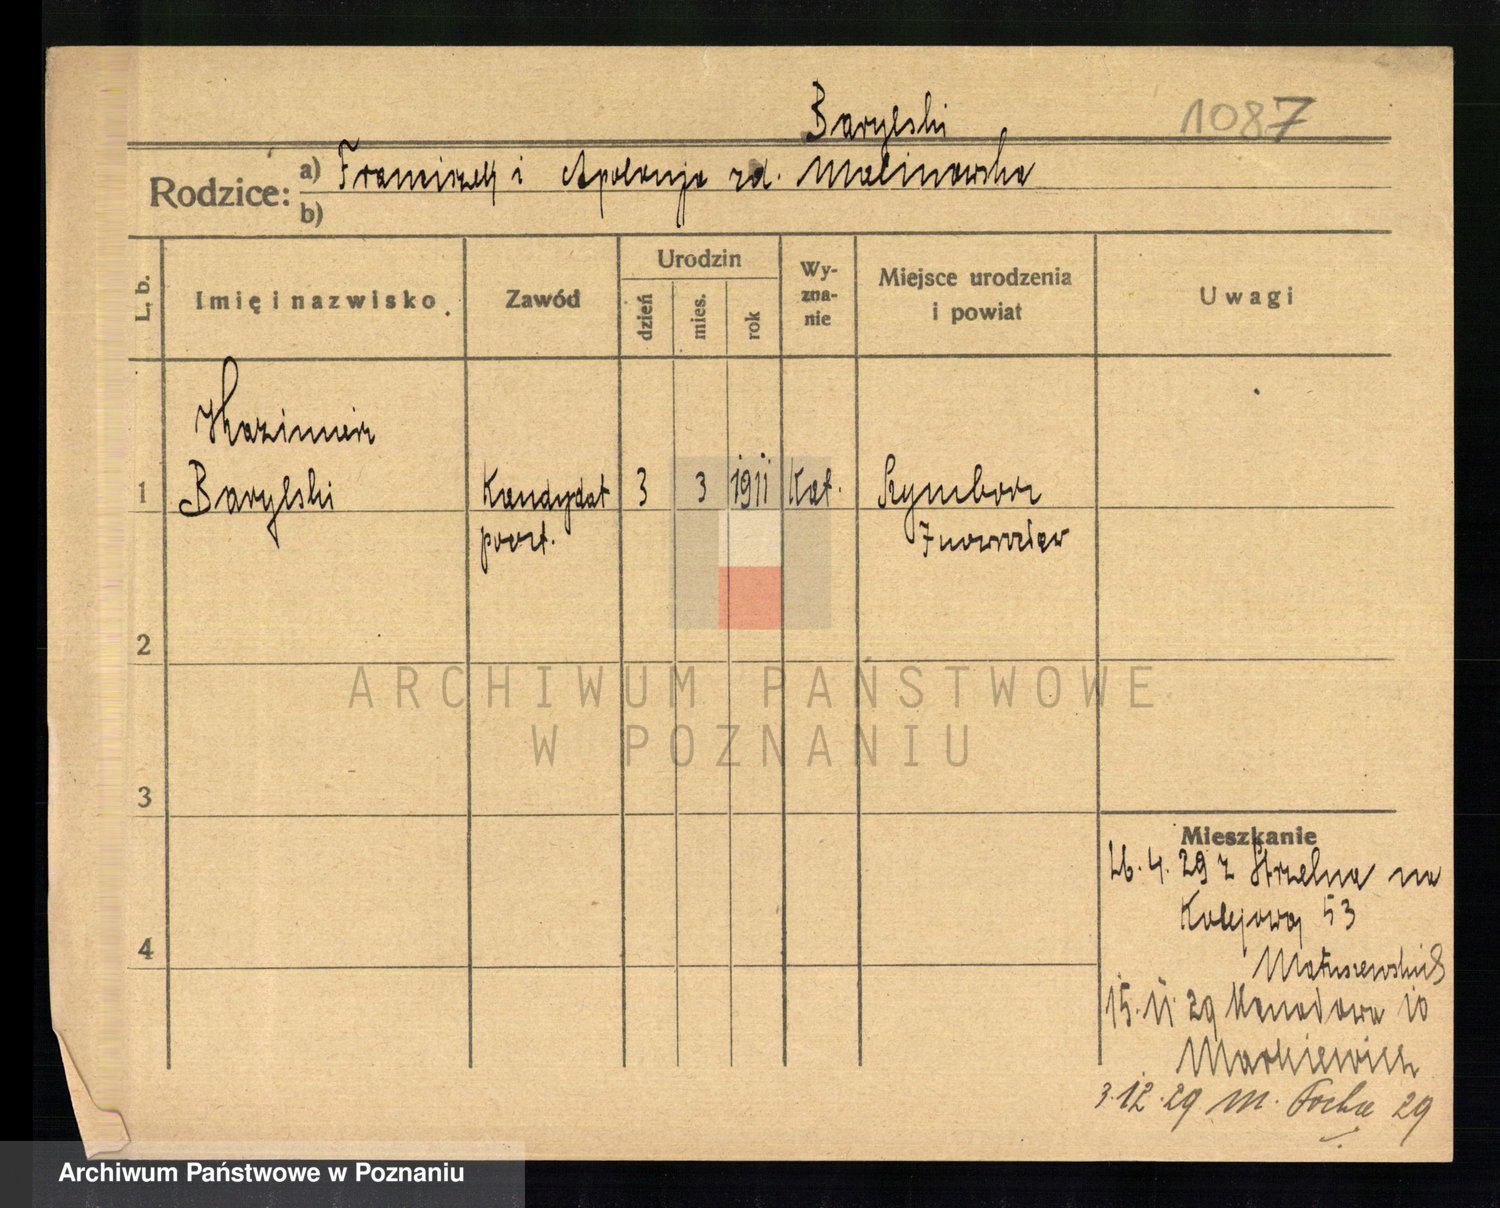 Barylski
1087
Rodzice: a) Franciszek i Apolonja zd. Malinowska
b)
L. b.
Imię i nazwisko
Zawód
Urodzin
dzień
mies.
rok
Wy-
zna-
nie
Miejsce urodzenia
i powiat
Uwagi
Kazimierz
1 Barylski Kandydat 3 3 1911 Kat. Szymborz
poczt. Inowrocław
2
3
4
ARCHIWUM PAŃSTWOWE
W POZNANIU
Mieszkanie
26.4.29 z Strzelna na
Kolejową 53
15.11.29 Kanadowa 10
Markiewicz
3.12.29 M. Focha 29
Archiwum Państwowe w Poznaniu